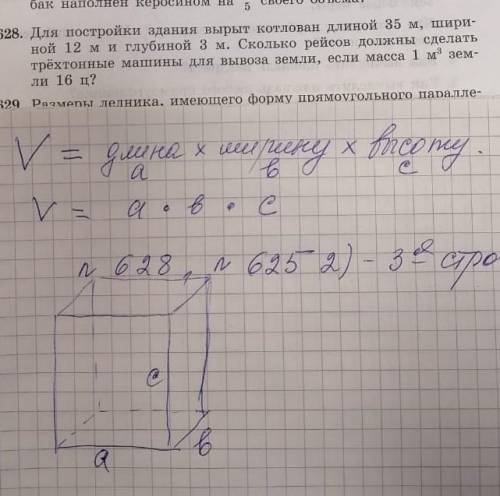 бак наполнен керосином на 5 своего объёма?
628. Для постройки здания вырыт котлован длиной 35 м, шири-
ной 12 м и глубиной 3 м. Сколько рейсов должны сделать
трёхтонные машины для вывоза земли, если масса 1 м³ зем-
ли 16 ц?
629. Размеры ледника, имеющего форму прямоугольного паралле-
V = длина х ширину х высоту.
а в с
V = а · в · с
n 628, n 625 2) - 3я стро
с
в
а